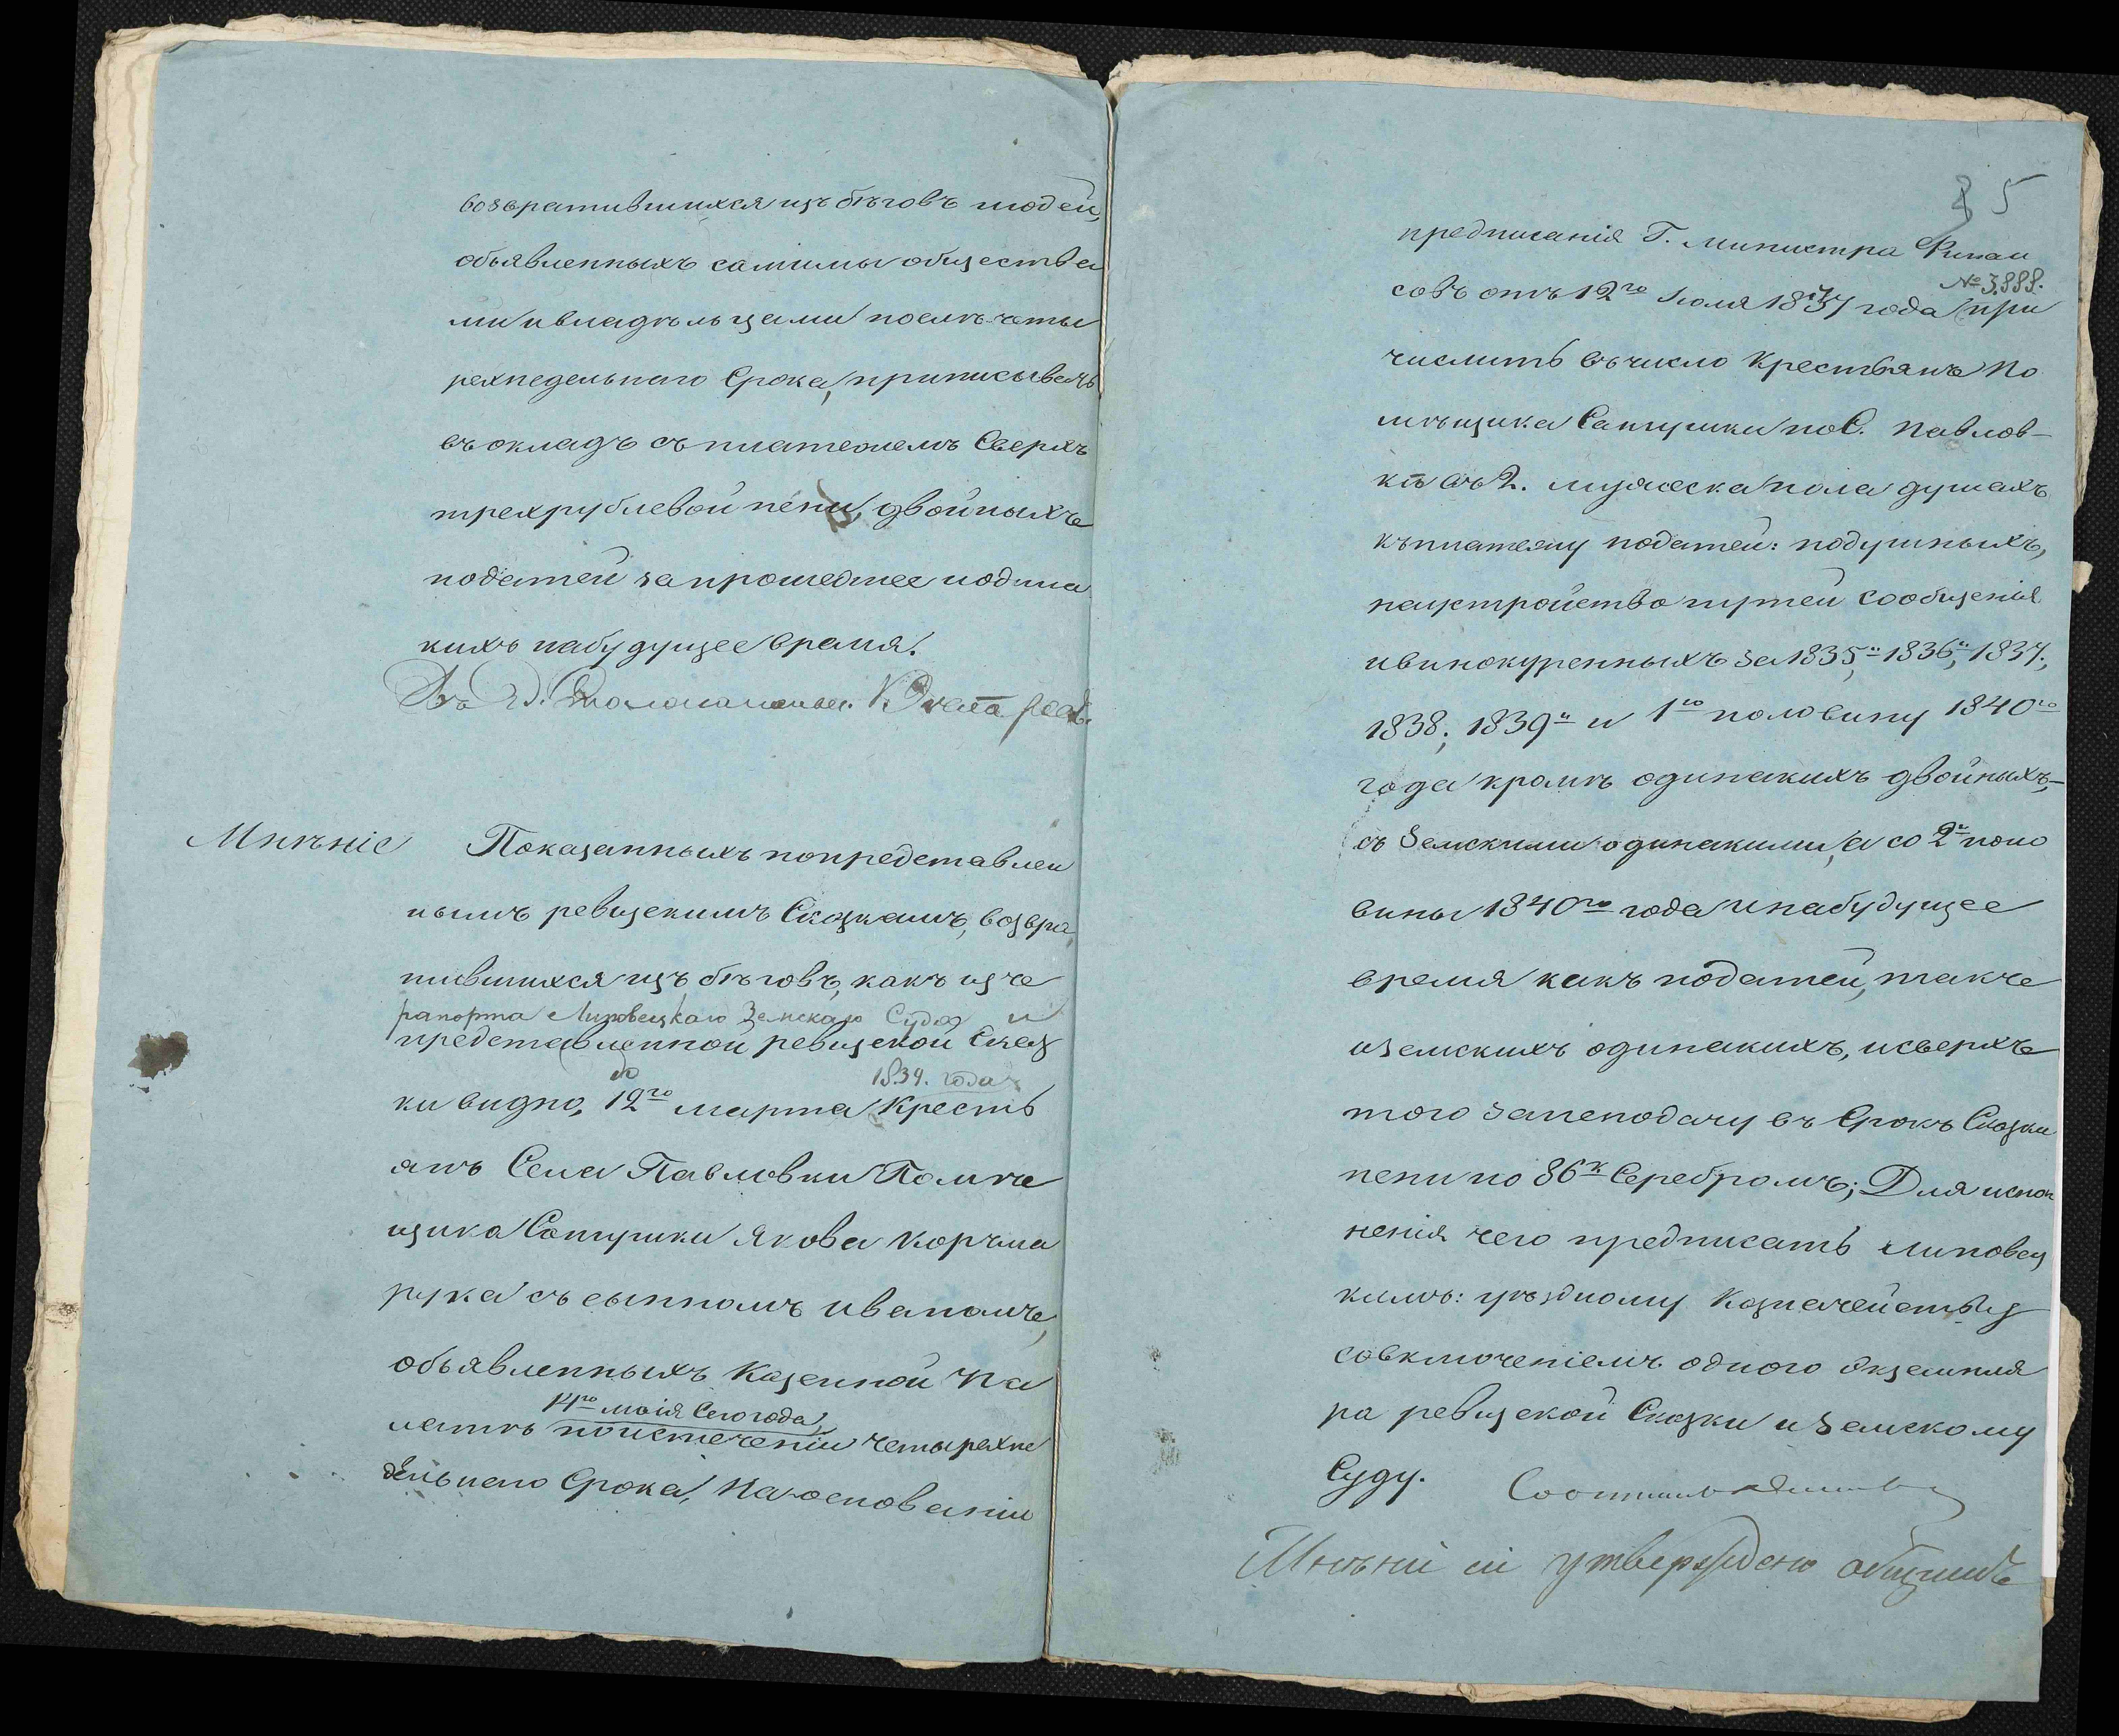 возвратившихся изъ бѣговъ людей,
объявленныхъ самими общества
ми и владѣльцами послѣ четы
рехнедельнаго Срока, приписывать
въ окладъ съ платежемъ Сверхъ
трехрублевой пени, двойныхъ
податей за прошедшее и одина
кихъ на будущее время.
Мнѣніе
Показанныхъ по представлен
нымъ ревизскимъ Сказкамъ, возвра
тившихся изъ бѣговъ, какъ изъ
рапорта Липовецкаго Земскаго Суда и
представленной ревизской Сказ
ки видно, 12го марта 1839. года Кресть
янъ Села Павловки Помѣ
щика Сатушки Якова Корчма
рука съ сынномъ иваномъ,
объявленныхъ Казенной Па
14го маія Сего года
латѣ по истеченіи четырехне
дельнаго Срока, На основаніи
5
предписанія Г. министра Финан
№ 3,888.
совъ отъ 12го Іюля 1837 года при
числить въ число Крестьянъ По
мѣщика Сатушки по С. Павлов-
кѣ въ 2. мужеска пола душахъ
къ платежу податей: подушныхъ,
на устройство путей сообщенія
и винокуренныхъ за 1835, 1836, 1837,
1838, 1839й и 1ю половину 1840го
года кромѣ одинакихъ двойныхъ,-
съ Земскими одинакими, а со 2й поло
вины 1840го года и на будущее
время какъ податей, такъ
и земскихъ одинакихъ, и сверхъ
того за неподачу въ Срокъ Сказки
пени по 86к Серебромъ; Для испол
ненія чего предписать Липовец
кимъ: уѣздному Казначейству
со включеніемъ одного Экземпля
ра ревизской Сказки и Земскому
Суду.
Мнѣніе утверждено общимъ